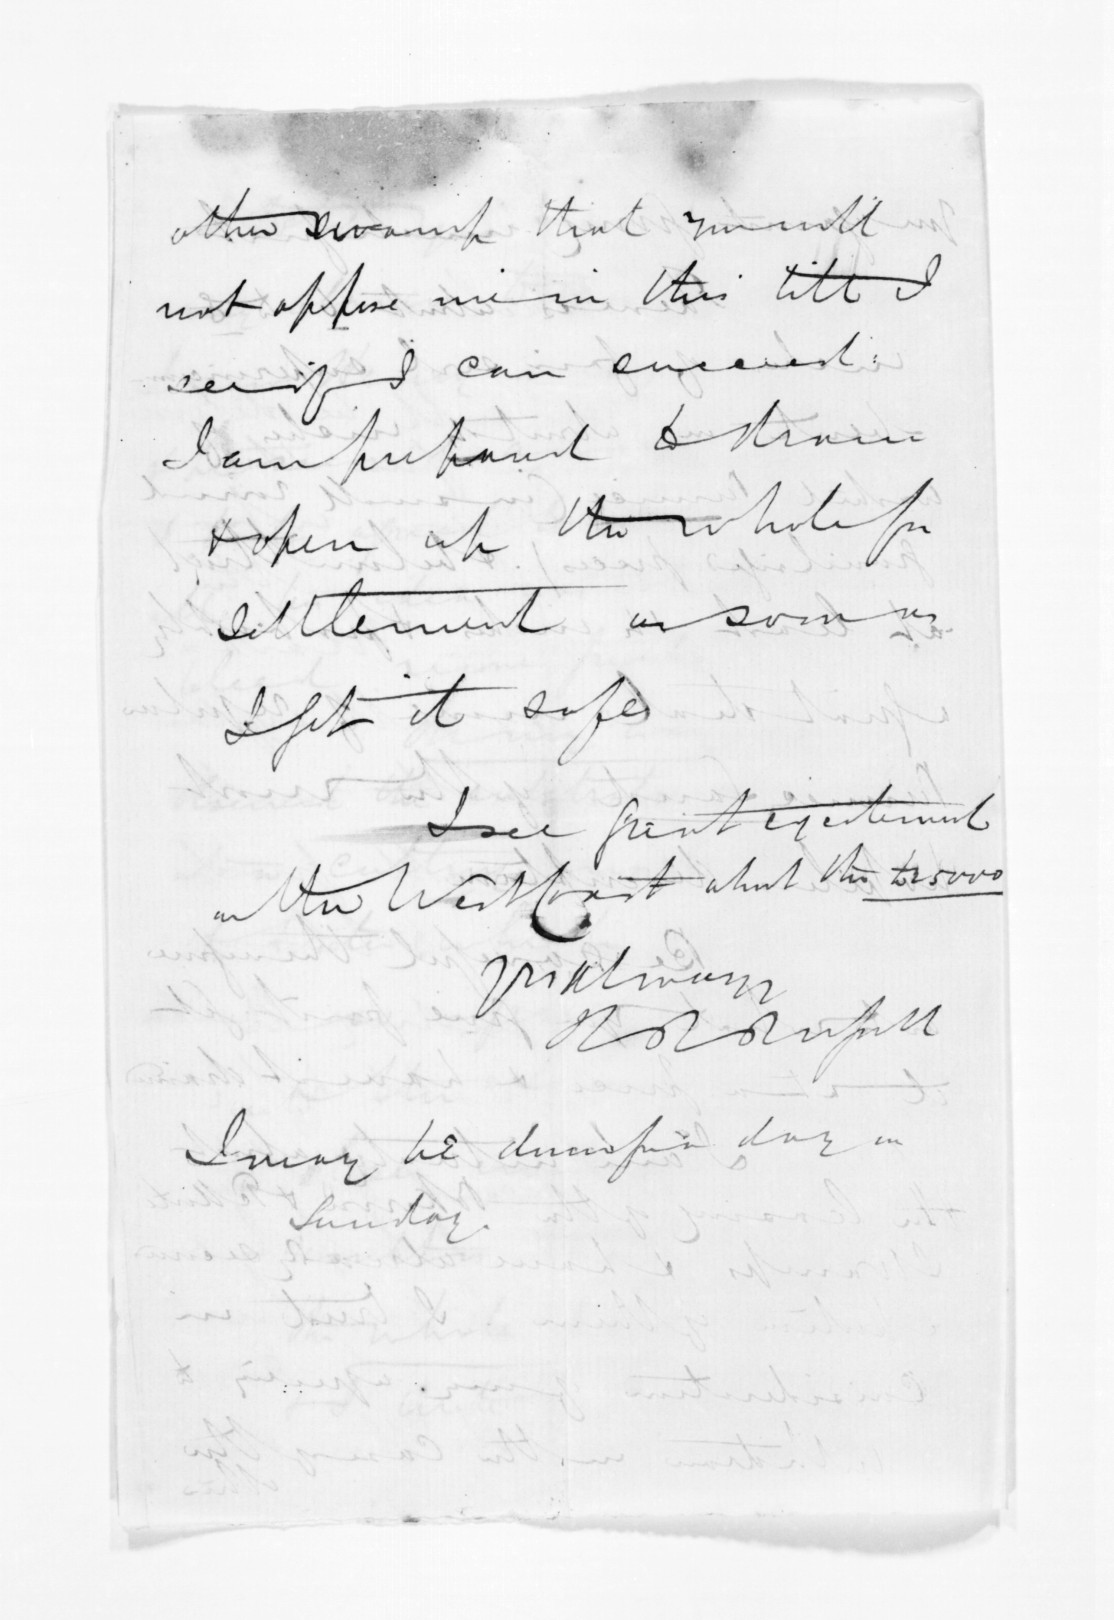 other swamp that you will
not oppose me in this till I
see if I can succeed.
I am prepared to drain
& open up the whole for
settlement as soon as
I get it safe
I see great excitement
on the West Coast about the £25000
yrs Always
I may be down for a day on
Sunday.